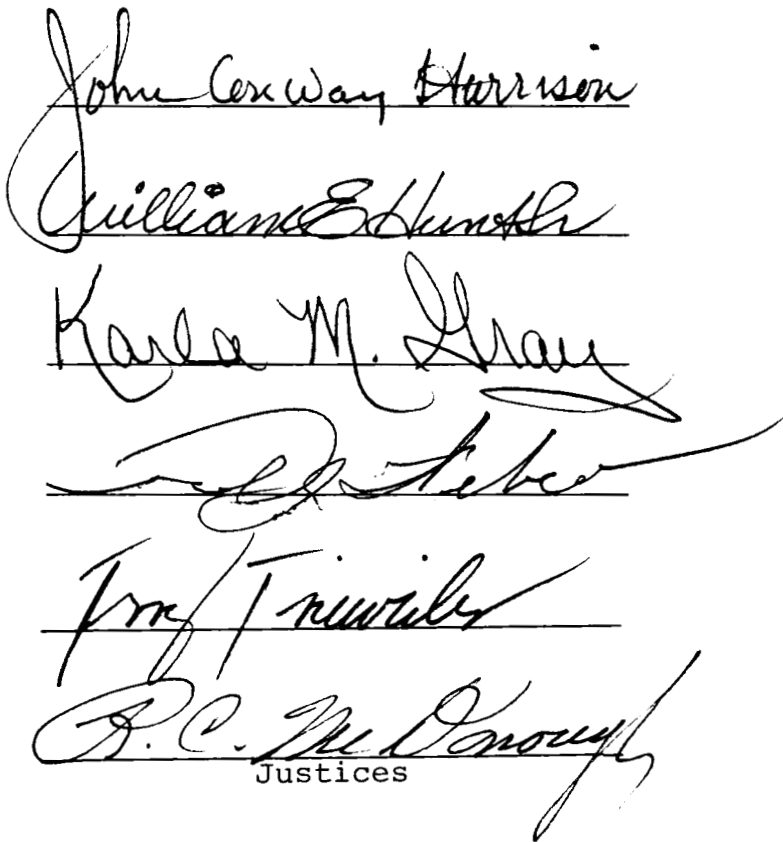 John Conway Harrison
William E Hunter
Karla M. Gray
Terry Trieweiler
R. C. McDonough
Justices